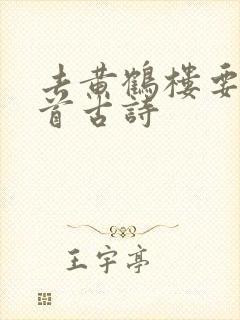 去黄鶴樓要
首古詩
王宇亭